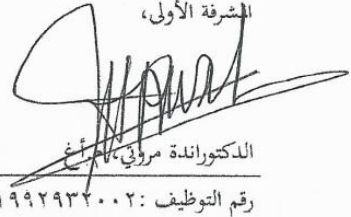 المشرفة الأولى،
الدكتوراندة مروتي، م.أغ
رقم التوظيف :١٩٩٢٩٣٢٠٠٢